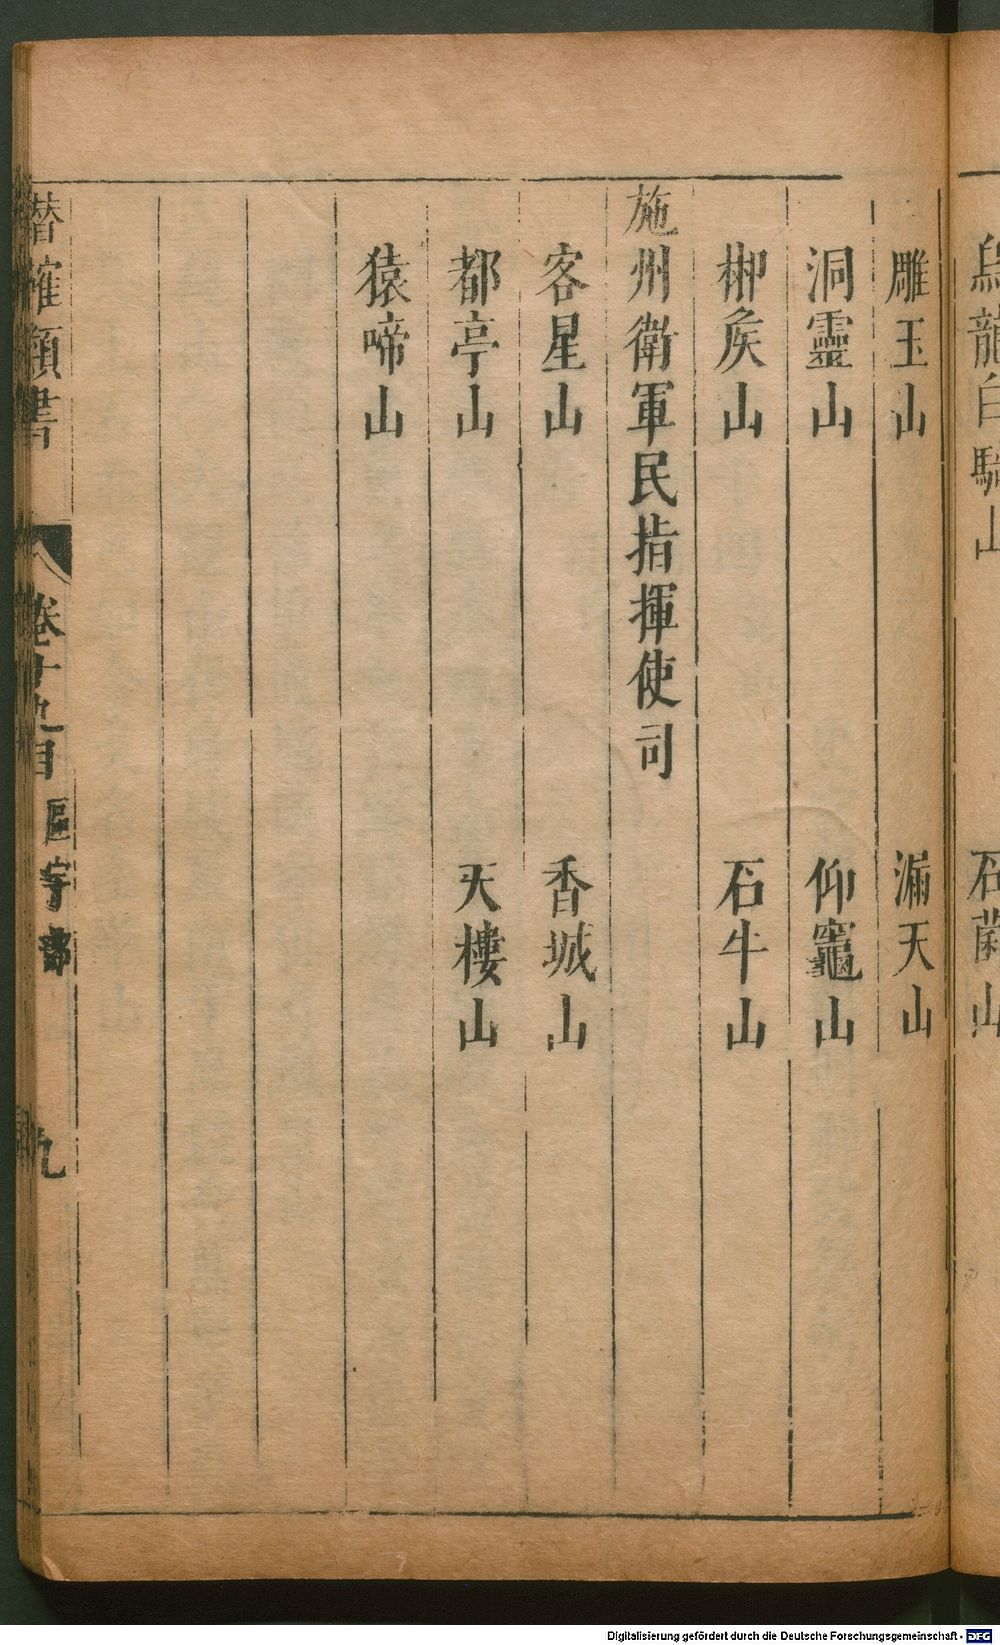 烏龍白騎山　石蘭山
雕玉山　漏天山
洞靈山　仰竈山
柳矦山　石牛山
施州衛軍民指揮使司
客星山　香城山
都亭山　天樓山
猿啼山
潛確類書　卷十九目　區宇部　九
Digitalisierung gefördert durch die Deutsche Forschungsgemeinschaft - DFG